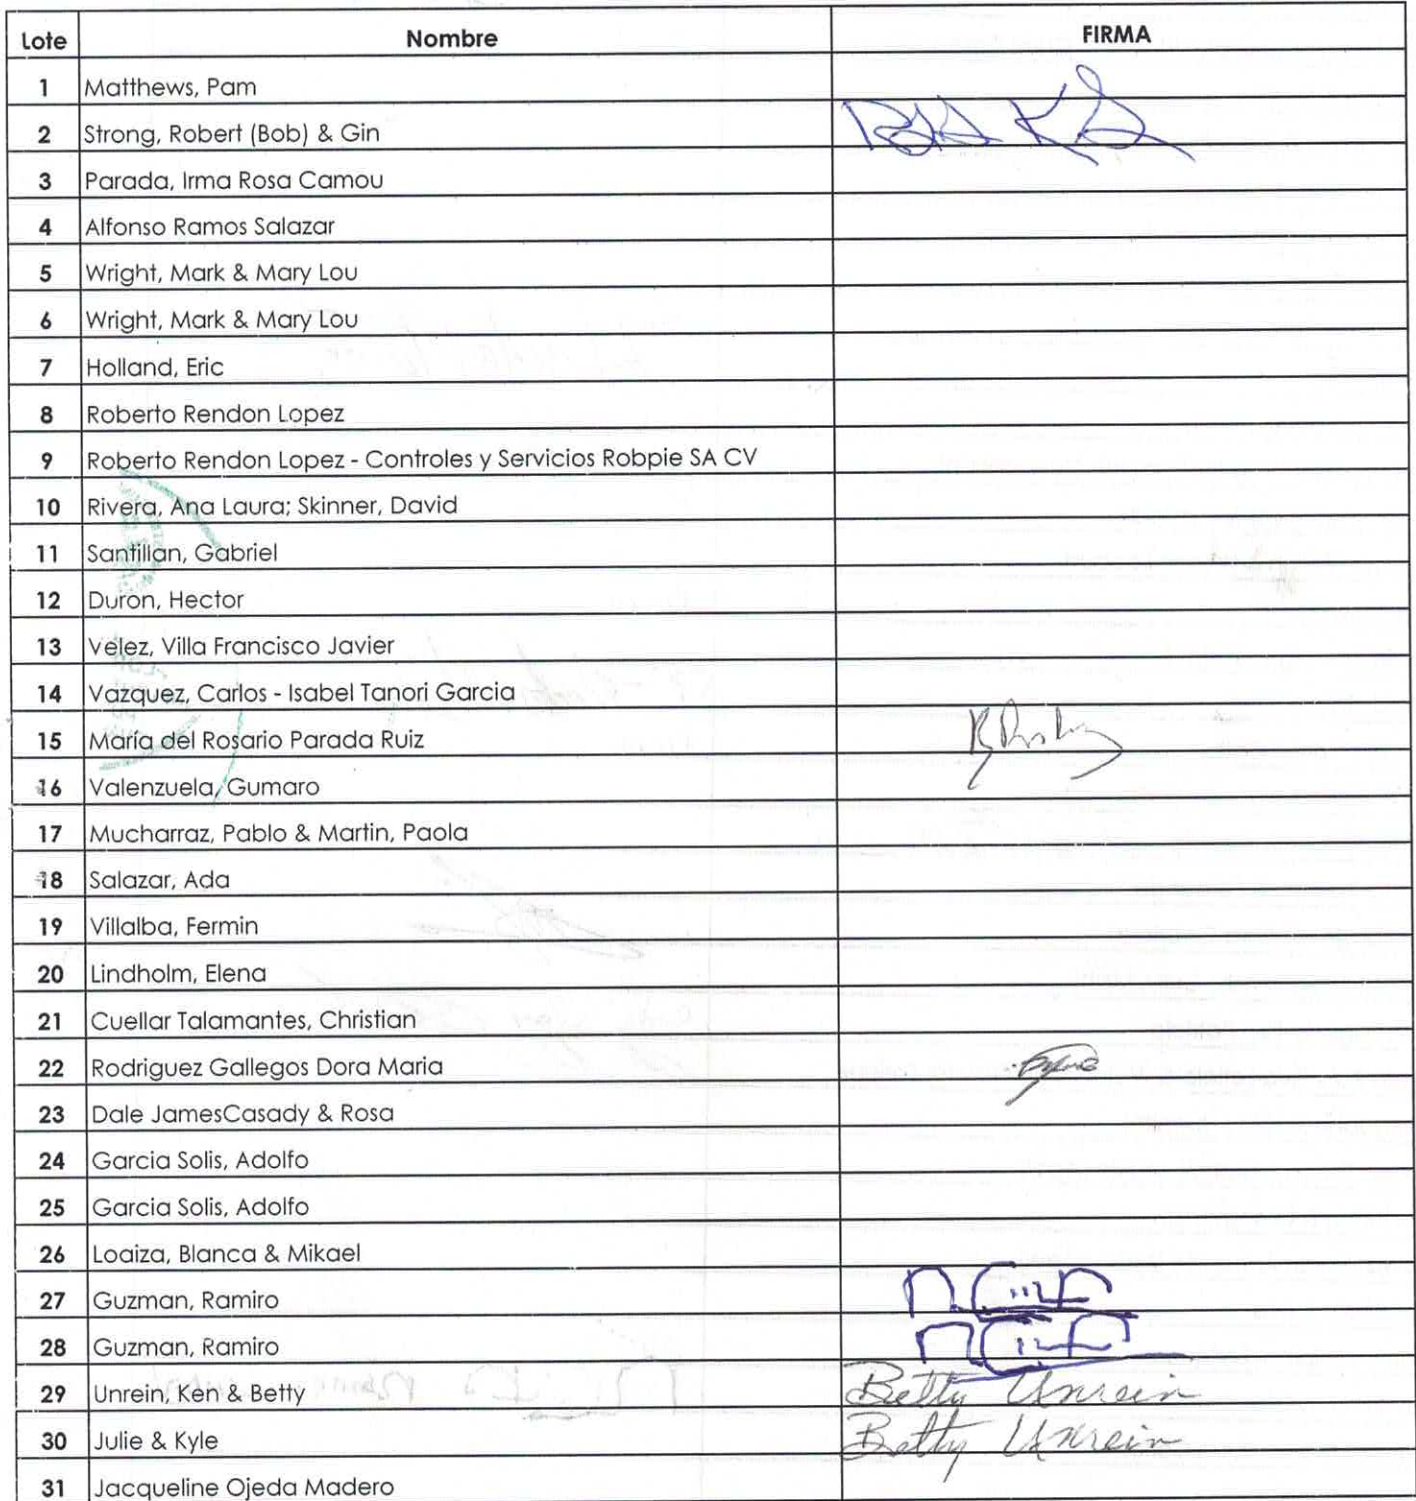 Lote Nombre FIRMA
1 Matthews, Pam
2 Strong, Robert (Bob) & Gin
3 Parada, Irma Rosa Camou
4 Alfonso Ramos Salazar
5 Wright, Mark & Mary Lou
6 Wright, Mark & Mary Lou
7 Holland, Eric
8 Roberto Rendon Lopez
9 Roberto Rendon Lopez - Controles y Servicios Robpie SA CV
10 Rivera, Ana Laura; Skinner, David
11 Santillan, Gabriel
12 Duron, Hector
13 Velez, Villa Francisco Javier
14 Vazquez, Carlos - Isabel Tanori Garcia
15 Maria del Rosario Parada Ruiz
16 Valenzuela, Gumaro
17 Mucharraz, Pablo & Martin, Paola
18 Salazar, Ada
19 Villalba, Fermin
20 Lindholm, Elena
21 Cuellar Talamantes, Christian
22 Rodriguez Gallegos Dora Maria
23 Dale JamesCasady & Rosa
24 Garcia Solis, Adolfo
25 Garcia Solis, Adolfo
26 Loaiza, Blanca & Mikael
27 Guzman, Ramiro
28 Guzman, Ramiro
29 Unrein, Ken & Betty Betty Unrein
30 Julie & Kyle Betty Unrein
31 Jacqueline Ojeda Madero